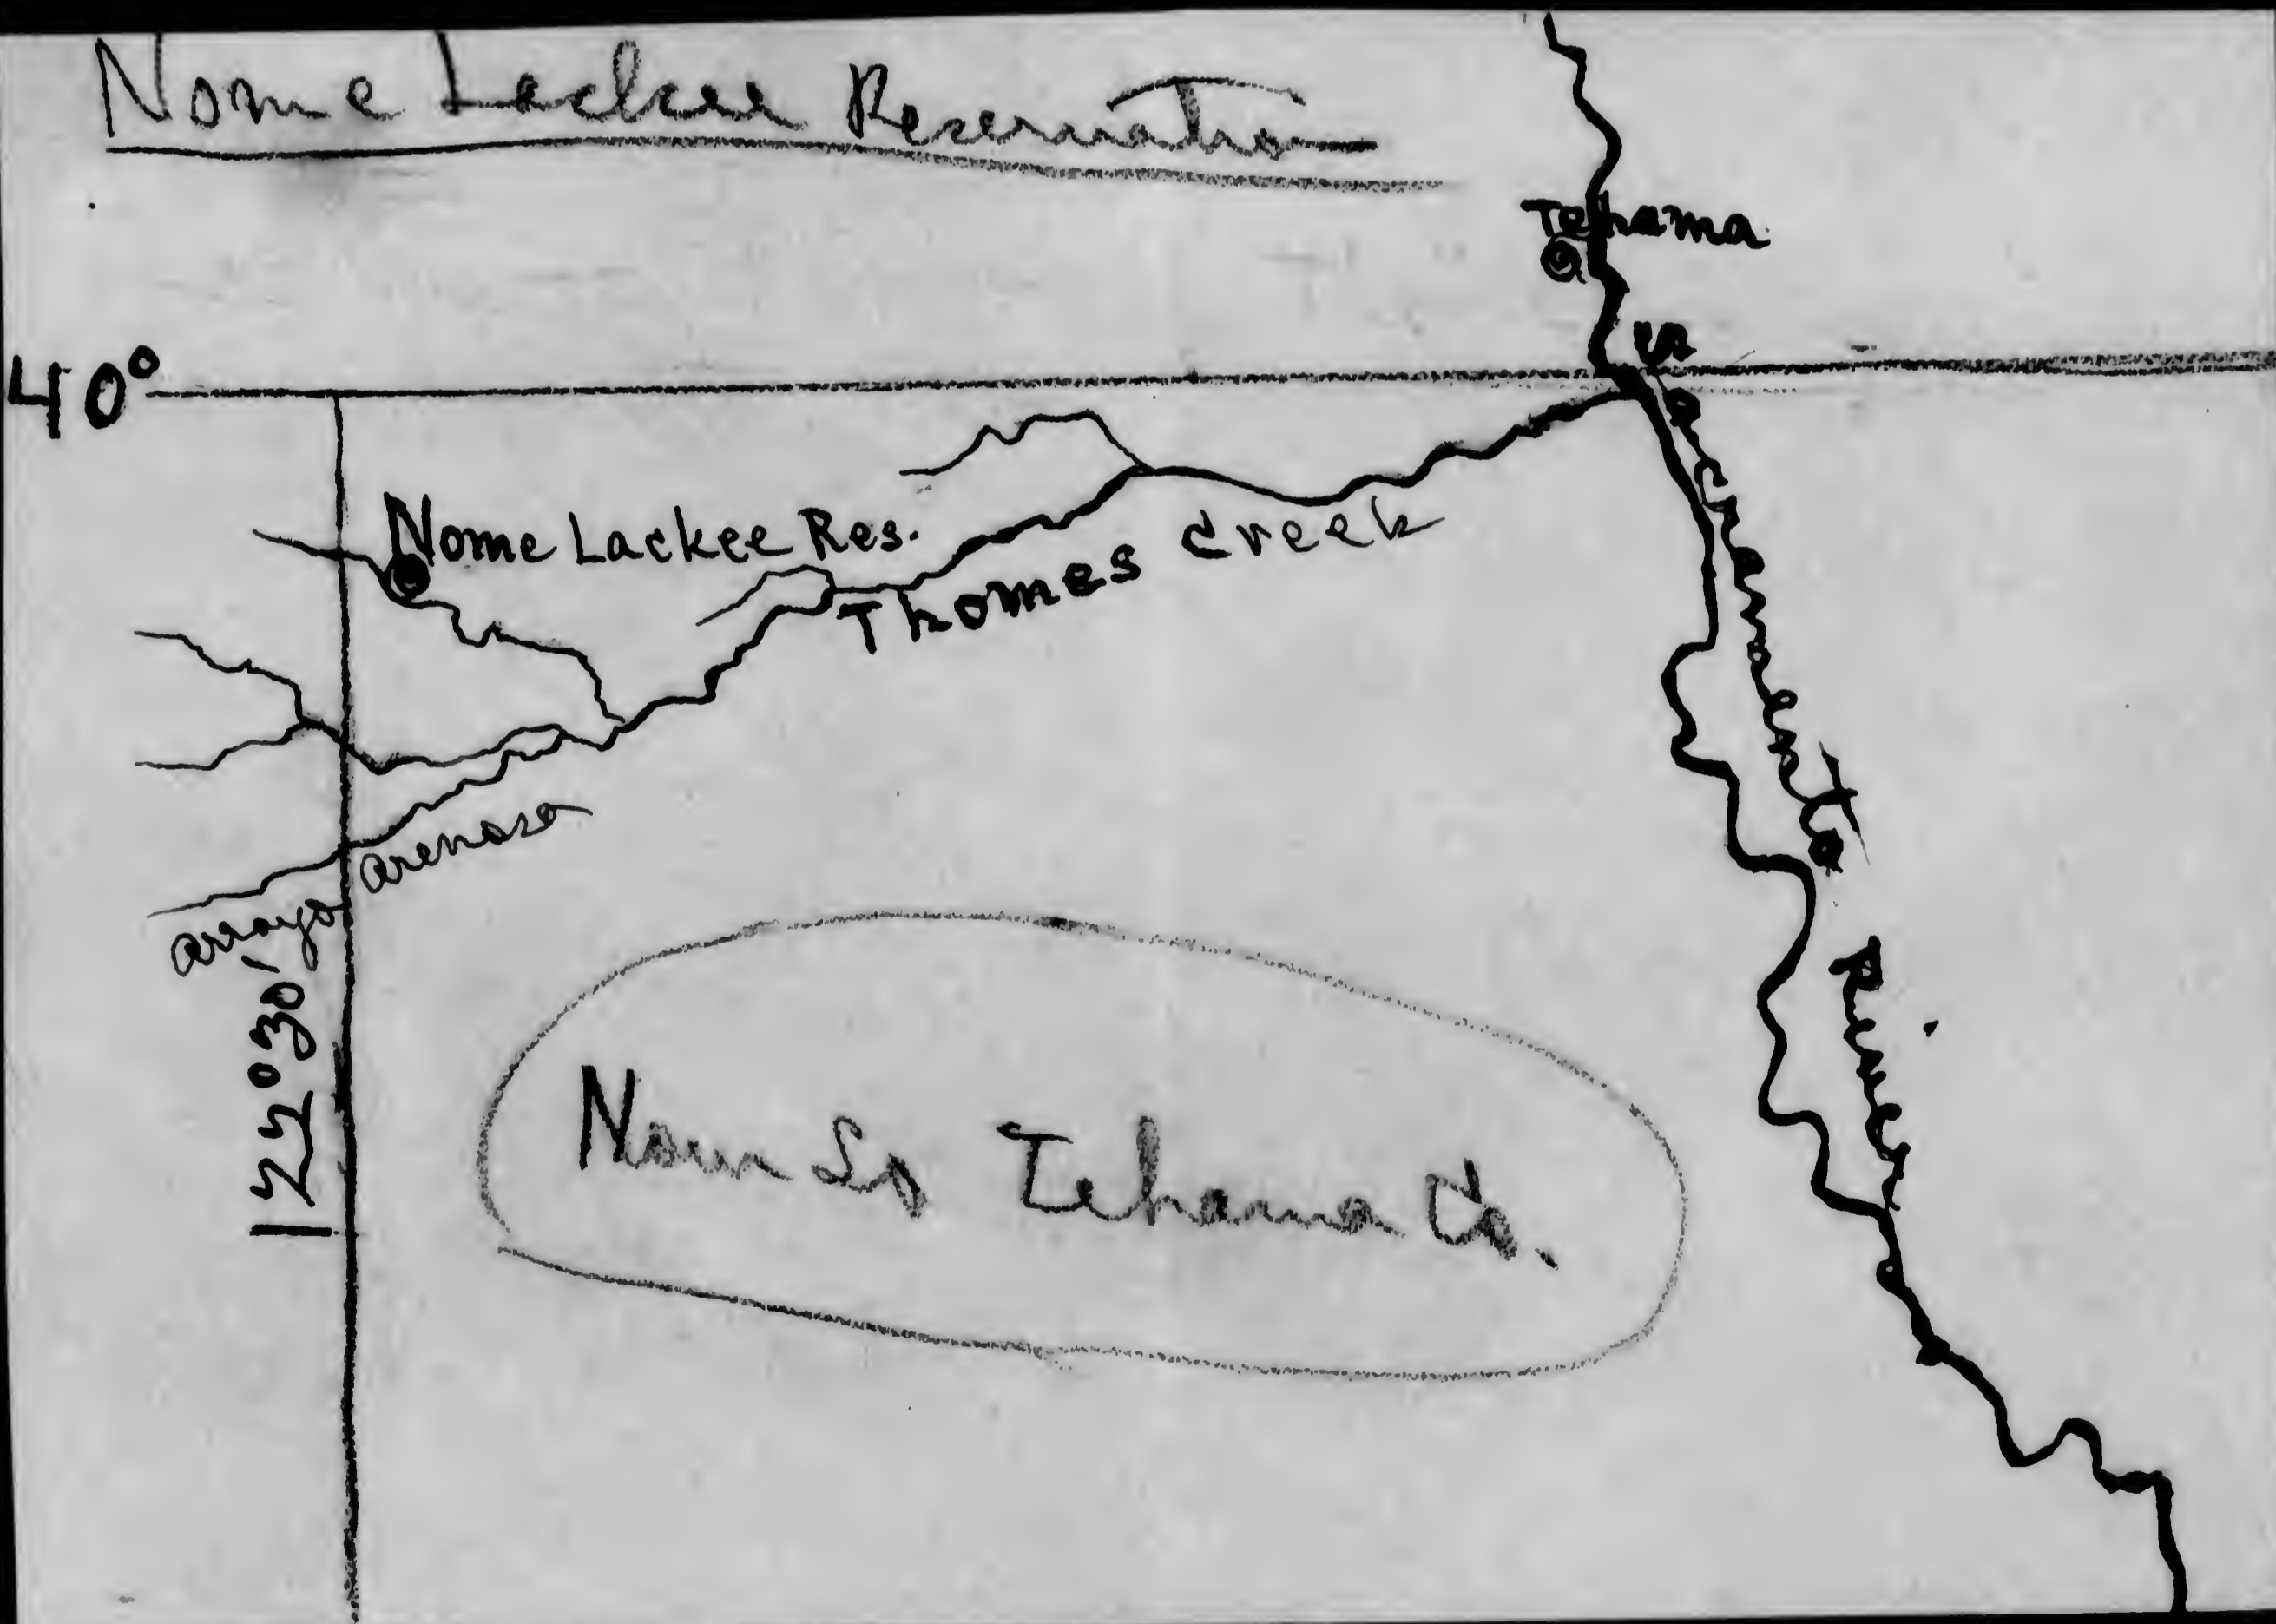 Nome Lackee Reservation
Tehama
40°
Nome Lackee Res.
Thomes Creek
Sacramento River
arroyo arenosa
122°30'
Now in So Tehama Co.